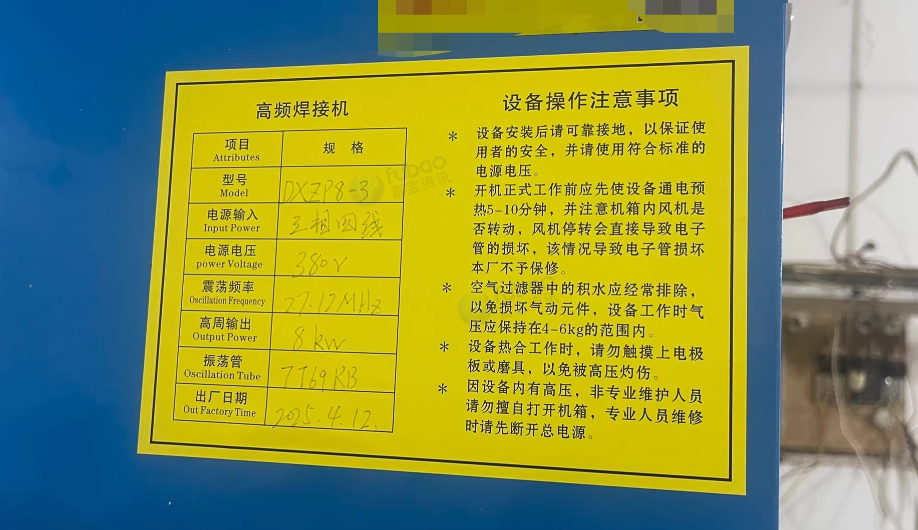 高频焊接机
项目 规格
Attributes
型号 DXZP8-3
Model
电源输入 三相四线
Input Power
电源电压 380V
power Voltage
震荡频率 27.12MHz
Oscillation Frequency
高周输出 8kw
Output Power
振荡管 7T69RB
Oscillation Tube
出厂日期 2025.4.12.
Out Factory Time
设备操作注意事项
* 设备安装后请可靠接地，以保证使
用者的安全，并请使用符合标准的
电源电压。
* 开机正式工作前应先使设备通电预
热5-10分钟，并注意机箱内风机是
否转动，风机停转会直接导致电子
管的损坏，该情况导致电子管损坏
本厂不予保修。
* 空气过滤器中的积水应经常排除，
以免损坏气动元件，设备工作时气
压应保持在4-6kg的范围内。
* 设备热合工作时，请勿触摸上电极
板或磨具，以免被高压灼伤。
* 因设备内有高压，非专业维护人员
请勿擅自打开机箱，专业人员维修
时请先断开总电源。
fubao
富宝资讯